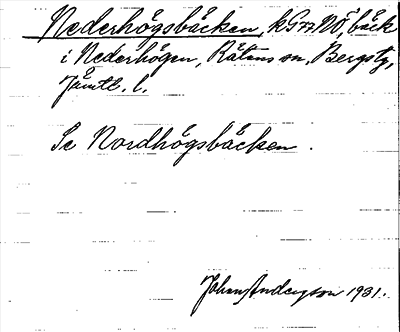 Nederhögsbäcken, kG77NÖ, bäck
i Nederhögen, Rätans sn, Bergs tg,
Jämtl. l.
Se Nordhögsbäcken.
Johan Anderson 1931.